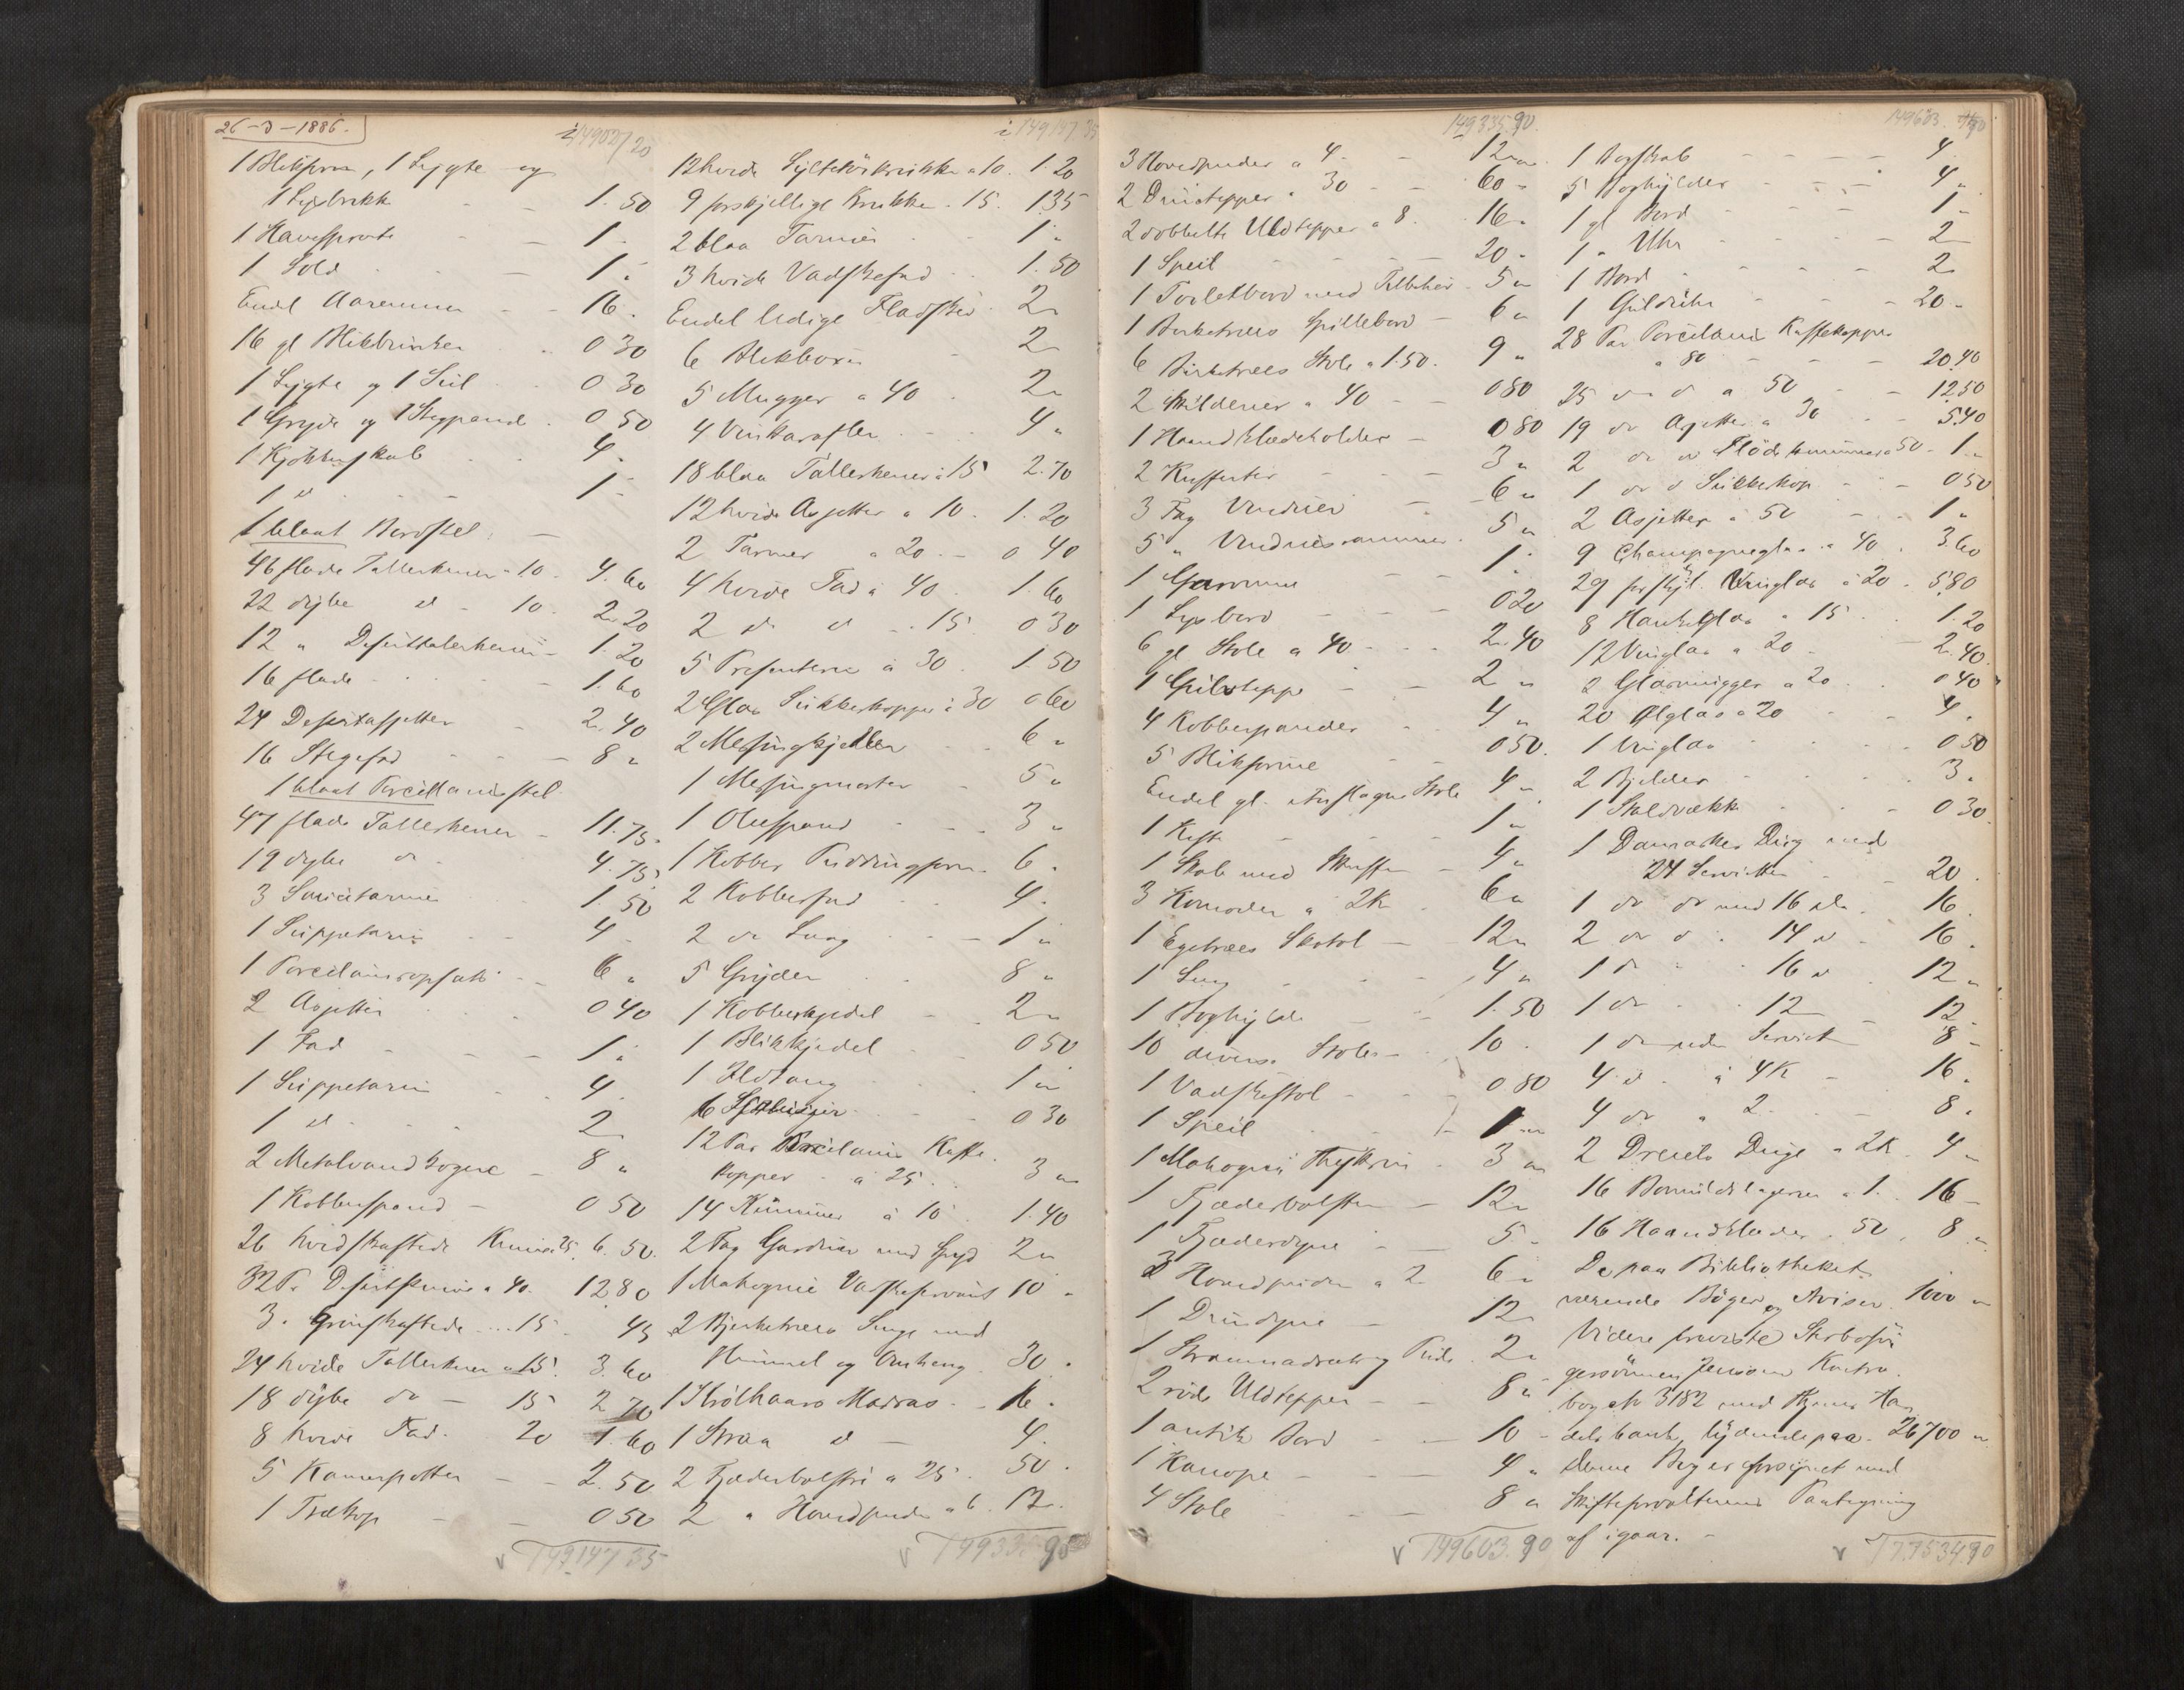 26-3-1886.
149021/20
1 Blikform, 1 Lygte og
1 1.50
1 Havesprøite - - 1 "
1 Sold - - 1 "
Endel - - 16.
16 gl Blikbrikker 0 30
1 Lygte og 1 Seil 0 30
1 Gryde og 1 Stegpande 0.50
1 Kjøkkenskab 4.
1 d - - 1 -
1 blaat Bordstel
46 flade Tallerkener a 10. 4.60
22 dybe d - 10. 2.20
12 " Deserttalerkener - 1.20
16 flade - - 1.60
24 Desertasjetter - 2.40
16 Stegefad - - 8 "
1 blaat Porcellainsstel
47 flade Tallerkener - 11.75
19 dybe do - 4.75
3 Saucetarriner 1.50
1 Suppetarin - 4
1 Porcelainsopsats - 6 "
2 Asjetter 0 40
1 Fad - - - 1 "
1 Suppetarin - 4
1 d - - 2
2 Metalvandkogere - 8 "
1 Kobberspand - 0 50
26 hvidskaftede Knive 25. 6.50.
32 Pr Desertknive a 40. 12 80
3 " skaftede ... 15. 45
24 hvide Tallerkener a 15. 3.60
18 dybe do - 15 2 70
8 hvide Fad. 20 1.60
5 Kamerpotter - - 2.50
1 Trækop - - 0 50
149147 35
149147.35
12 hvide Syltetøikrukker a 10. 1.20
9 forskjellige Krukker. 15. 1.35
2 blaa Tarriner - 1 "
3 hvide Vadskefad 1.50
Endel ledige Fladsker 2 "
6 Blekboxer - 2 "
5 Mugger a 40 2 "
4 Vinkarafler - 4 "
18 blaa Tallerkener a 15 2.70
12 hvide Asjetter a 10. 1.20
2 Tarriner a 20. - 0 40
4 hvide Fad a 40 1.60
2 d d - 15 0 30
5 Presenterer a 30 1.50
2 Glas Sukkerkopper a 30 0 60
2 Messingkjedler - 6 "
1 Messingmorter - 5 "
1 - - 3 "
1 Kobber Puddingform - 6.
2 Kobberfad - 4.
2 do Laag - - 1 "
5 Gryder 8 "
1 Kobberkjedel - 2 "
1 Blikkjedel 0 50
1 Ildtang 1 "
6 - 0 30
12 Par Porcelains Kaffe-
kopper - a 25. 3 "
14 Krummer a 10 1.40
2 Fag Gardiner med 2 "
1 Mahogni Vadskeservant 10 "
2 Bjerketræes Senge med
Himmel og Omheng 30.
1 Krølhaars Madras - 16.
1 Straa d - 4.
2 Fjæderbolster a 25. 50.
2 " Hovedpuder a 6. 12.
149335 90
149335.90
3 Hovedpuder a 4 - 12 "
2 Duntepper " 30 - - 60 "
2 dobbelte Uldtepper a 8. 16 "
1 Speil - - - 20 "
1 Toiletbord med Tilbehør 5 "
1 Birketræes Spillebord - 6 "
6 Birketræes Stole a 1.50. 9 "
2 Skilderier a 40 - - 0 80
1 Haandklædeholder - 0 80
2 Kufferter - - 3 "
3 Fag Vinduer - - 6 "
5 " Vinduesrammer. 5 "
1 - - 1.
1 - - - 0 20
6 gl Stole a 40 - - - 2.40
1 Gulvteppe - - 2 "
4 Kobberpander - 4 "
5 Blikforme - 0 50.
Endel gl. Stole 4 "
1 Kiste - - - 1 "
1 Skab med Skuffer - 4 "
3 Komoder a 2K 6 "
1 Egetræes Skatol - 12 "
1 Seng - - 4 "
1 Boghylde - - 1.50
10 diverse Stole - 10.
1 Vadskestol - - 0.80
1 Speil - 1 "
1 Mahogni 3 "
1 Fjæderbolster - 12 "
1 Fjæderdyne - 5 "
3 Hovedpuder a 2 6 "
1 Dundyne - 12 "
1 Straamadrats og Pude 2 "
2 røde Uldtepper - - 8 "
1 antik Bord - - 10 -
1 Kanope - - - 4 "
4 Stole - - - 8 "
149603.90
149603. 90
1 Bogskab - - - 4 "
5 Boghylder - - - 4 "
1 gl Bord - - - 1 "
1 " Uhr - - - 2
1 Bord - - - 2 "
1 Guldrihr - - - 20 "
28 Par Porcelains Kaffekopper
a 80 - - - 20.40
25 do d a 50 - - 12.50
19 do Asjetter a 30 - - 5.40
2 do d Flødekrummer a 50 - 1 "
1 do d Sukkerkop - - 0 50
2 Asjetter a 50 - 1 "
9 Champagneglas a 40 3.60
29 forskjl. Vinglas a 20 5.80
8 Hankeglas a 15 1.20
12 Vinglas a 20 - 2.40.
2 Glasmugger a 20 0 40
20 Ølglas a 20 - 4.
1 Vinglas - - 0 50
2 Bjelder - - 3.
1 0 30.
1 Damaskes Dug med
24 Servietter - 20.
1 do do med 16 do. 16.
2 do d " 14 d - 16.
1 d " " 16 d 12 "
1 do " 12 - 12.
1 do uden Serviet 8 -
4 d. a 4K - 16.
4 do a 2. - 8.
2 Dreiels Duge a 2K 4 "
16 Bomuldslagener a 1. 16 -
16 Haandklæder 50. 8 "
De paa Bibliotheket
værende Bøger og Aviser 1000 "
Videre foreviste
Kontra-
bog No 3182 med Han-
delsbank, lydende paa 26700 "
denne Bog er forsynet med
Skifteforvalterens Paategning
af igaar. -
177534.90